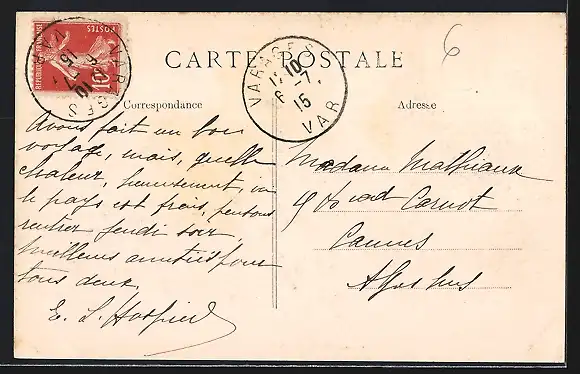 CARTE POSTALE
6
Correspondance
Adresse
REPUBLIQUE FRANÇAISE
POSTES
10c
VARAGES
VAR
VARAGES
10
6 -7
15
VAR
Avons fait un bon
voyage, mais, quelle
chaleur, heureusement, ici
le pays est frais, pensons
rentrer jeudi soir,
meilleures amitiés pour
tous deux.
E. L.
Madame Mathieu
4 Bould Carnot
Cannes
Alpes Mmes